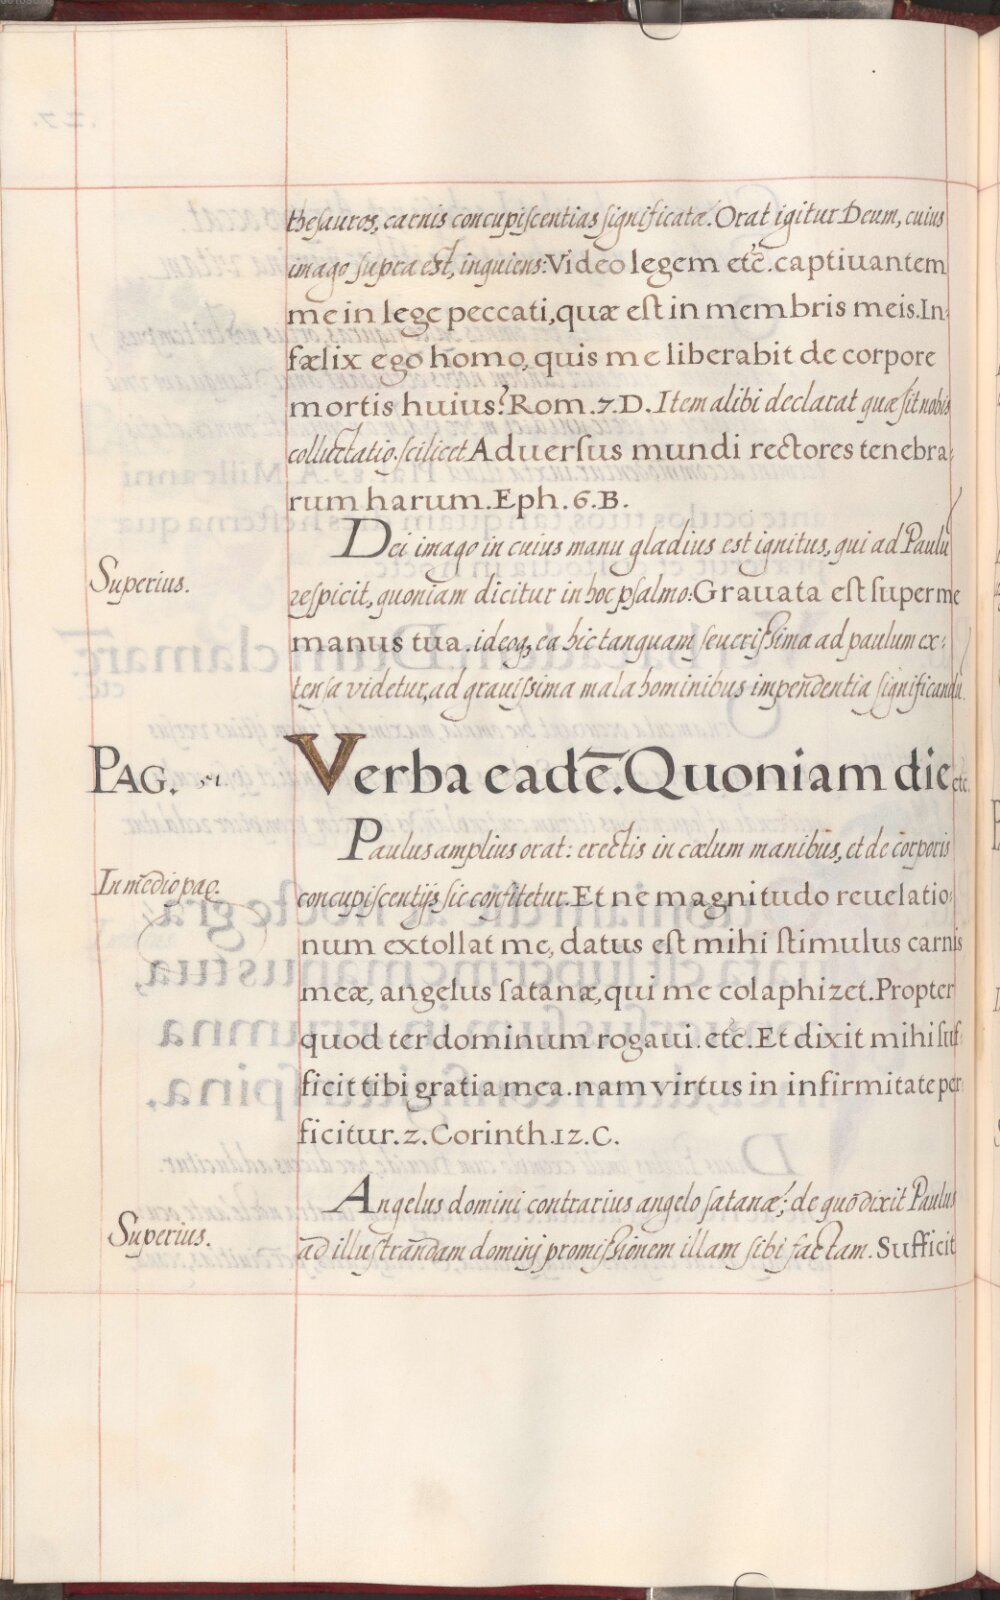 thesauros, carnis concupiscentias significatā. Orat igitur Deum, cuius
imago supra est, inquiens: Video legem etc̄. captiuantem
me in lege peccati, quæ est in membris meis. In-
fælix ego homo, quis me liberabit de corpore
mortis huius? Rom. 7. D. Item alibi declarat quæ sit nobis
colluctatio. scilicet Aduersus mundi rectores tenebra-
rum harum. Eph. 6. B.
Dei imago in cuius manu gladius est ignitus, qui ad Paulū
Superius.
respicit, quoniam dicitur in hoc psalmo: Grauata est super me
manus tua. ideoq, ea hic tanquam seuerissima ad paulum ex-
tensa videtur, ad grauissima mala hominibus impendentia significandū.
PAG.
Verba eadē. Quoniam die etc.
Paulus amplius orat: erectis in cælum manibus, et de corporis
In medio pag.
concupiscentijs sic confitetur. Et ne magnitudo reuelatio-
num extollat me, datus est mihi stimulus carnis
meæ, angelus satanæ, qui me colaphizet. Propter
quod ter dominum rogaui. etc̄. Et dixit mihi suf-
ficit tibi gratia mea. nam virtus in infirmitate per-
ficitur. 2. Corinth. 12. C.
Angelus domini contrarius angelo satanæ; de quo dixit Paulus
Superius.
ad illustrandam dominj promissionem illam sibi factam. Sufficit